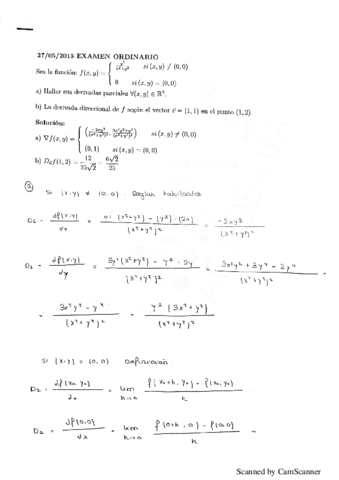 27/05/2015 EXAMEN ORDINARIO
Sea la función: f(x,y) = { y³/(x²+y²) si (x,y) ≠ (0,0)
0 si (x,y) = (0,0)
a) Hallar sus derivadas parciales ∀(x,y) ∈ ℝ².
b) La derivada direccional de f según el vector v⃗ = (1,1) en el punto (1,2).
Solución:
a) ∇f(x,y) = si (x,y) ≠ (0,0)
(0,1) si (x,y) = (0,0)
b) f(1,2) = 12/(25√2) = 6√2/25
a)
Si (x,y) ≠ (0,0) Reglas habituales
D₁ = df(x,y)/dx = 0·(x²+y²) - (y³)·(2x) / (x²+y²)² = -2xy³ / (x²+y²)²
D₂ = df(x,y)/dy = 3y²(x²+y²) - y³·2y / (x²+y²)² = 3x²y² + 3y⁴ - 2y⁴ / (x²+y²)²
= / (x²+y²)² = / (x²+y²)²
Si (x,y) = (0,0) Definición
D₁ = df(x₀,y₀)/dx = lim h→0 f(x₀+h, y₀) - f(x₀,y₀) / h
D₁ = df(0,0)/dx = lim h→0 f(0+h, 0) - f(0,0) / h =
Scanned by CamScanner